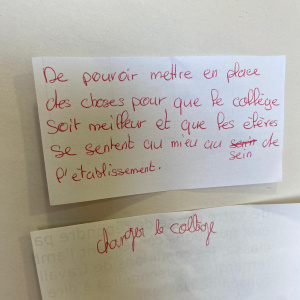 De pouvoir mettre en place
des choses pour que le collège
soit meilleur et que les élèves
se sentent au mieu au sein de
l'etablissement.
changer le college